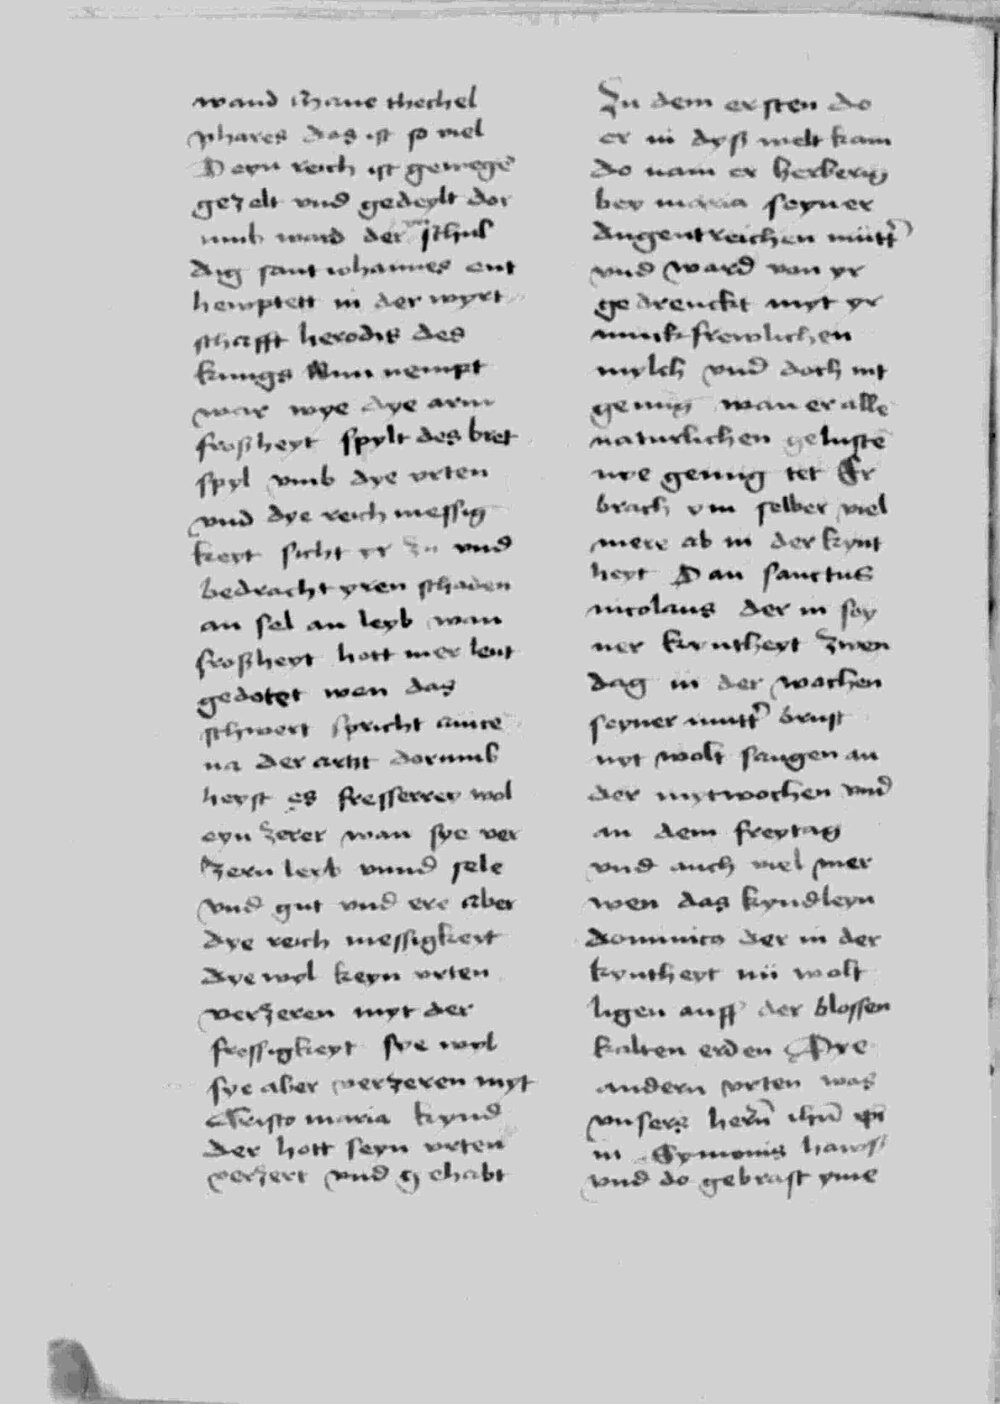 wand Mane thechel
phares das ist so viel
Deyn reich ist gewegē
gezelt vnd gedeylt dor
umb ward der schul
dig sant iohannes ent
hewptett in der wyrt
schafft herodis des
kunigs Nun nempt
war wye dye arm
froßheyt spylt des bret
spyl vmb dye vrten
vnd dye reich messig
keyt sicht yr zu vnd
bedracht yren schaden
an sel an leyb wan
froßheyt hott mer leut
gedotet wen das
schwert spricht auice
na der artzt dorumb
heyst es fresserrey wol
eyn zerer wan sye ver
zern leyb vnnd sele
vnd gut vnd ere aber
dye reich messigkeyt
dye wyl keyn vrten
verzeren myt der
fressigkeyt sye wyl
sye aber verzeren myt
Christo maria kynd
der hott seyn vrten
verzert vnd gehabt
Zu dem ersten do
er in dyß welt kam
do nam er herberig
bey maria seyner
dugentreichen mutt̄
vnd ward von yr
gedrenckt myt yr
iunckfrewlichen
mylch vnd doch nit
genug wan er alle
naturlichen gelustē
nye genug tet Er
brach ym selber viel
mere ab in der kynt
heyt Dan sanctus
nicolaus der in sey
ner kyntheyt zwen
dag in der wochen
seyner mutt̄ brust
nyt wolt saugen an
der mytwochen vnd
an dem freytag
vnd auch viel mer
wen das kyndleyn
dominico der in der
kyntheyt nü wolt
ligen auff der blossen
kalten erden Dye
andern vrten was
vnsers hern̄ ihū xp̄i
in Symonis hawß
vnd do gebrast yme